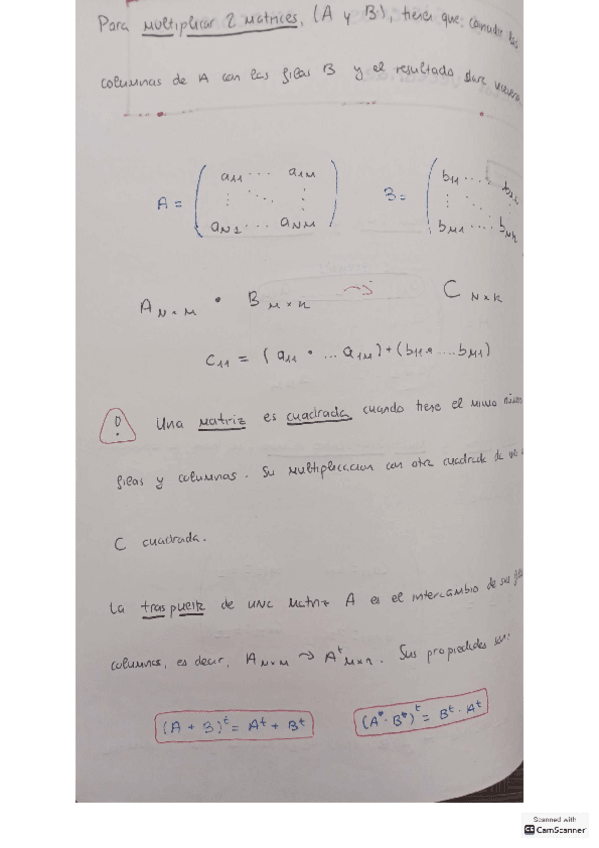 Para multiplicar 2 matrices, (A y B), tienen que coincidir las
columnas de A con las filas B y el resultado dará
A = ( a11 ... a1M
aN1 ... aNM )
B = ( b11 ...
bM1 ... bMK
A N×M • B M×K → C N×K
C11 = (a11 • ... a1M) + (b11 • ... bM1)
! Una matriz es cuadrada cuando tiene el mismo
filas y columnas. Su multiplicacion con otra cuadrada da
C cuadrada.
La traspuesta de una matriz A es el intercambio de sus
columnas, es decir, A N×M → A^t M×N. Sus propiedades son:
(A + B)^t = A^t + B^t
(A • B)^t = B^t · A^t
Scanned with
CS CamScanner